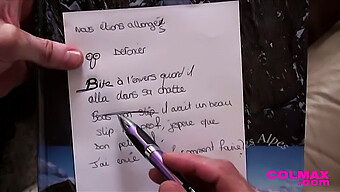 Nous étions allongés
Détoxer
Bite à l'envers quand il
alla dans sa chatte
Pas un slip il avait un beau
slip, j'espère que
Bon
J'ai envie (comment faire)
Alpes
COLMAX
.com